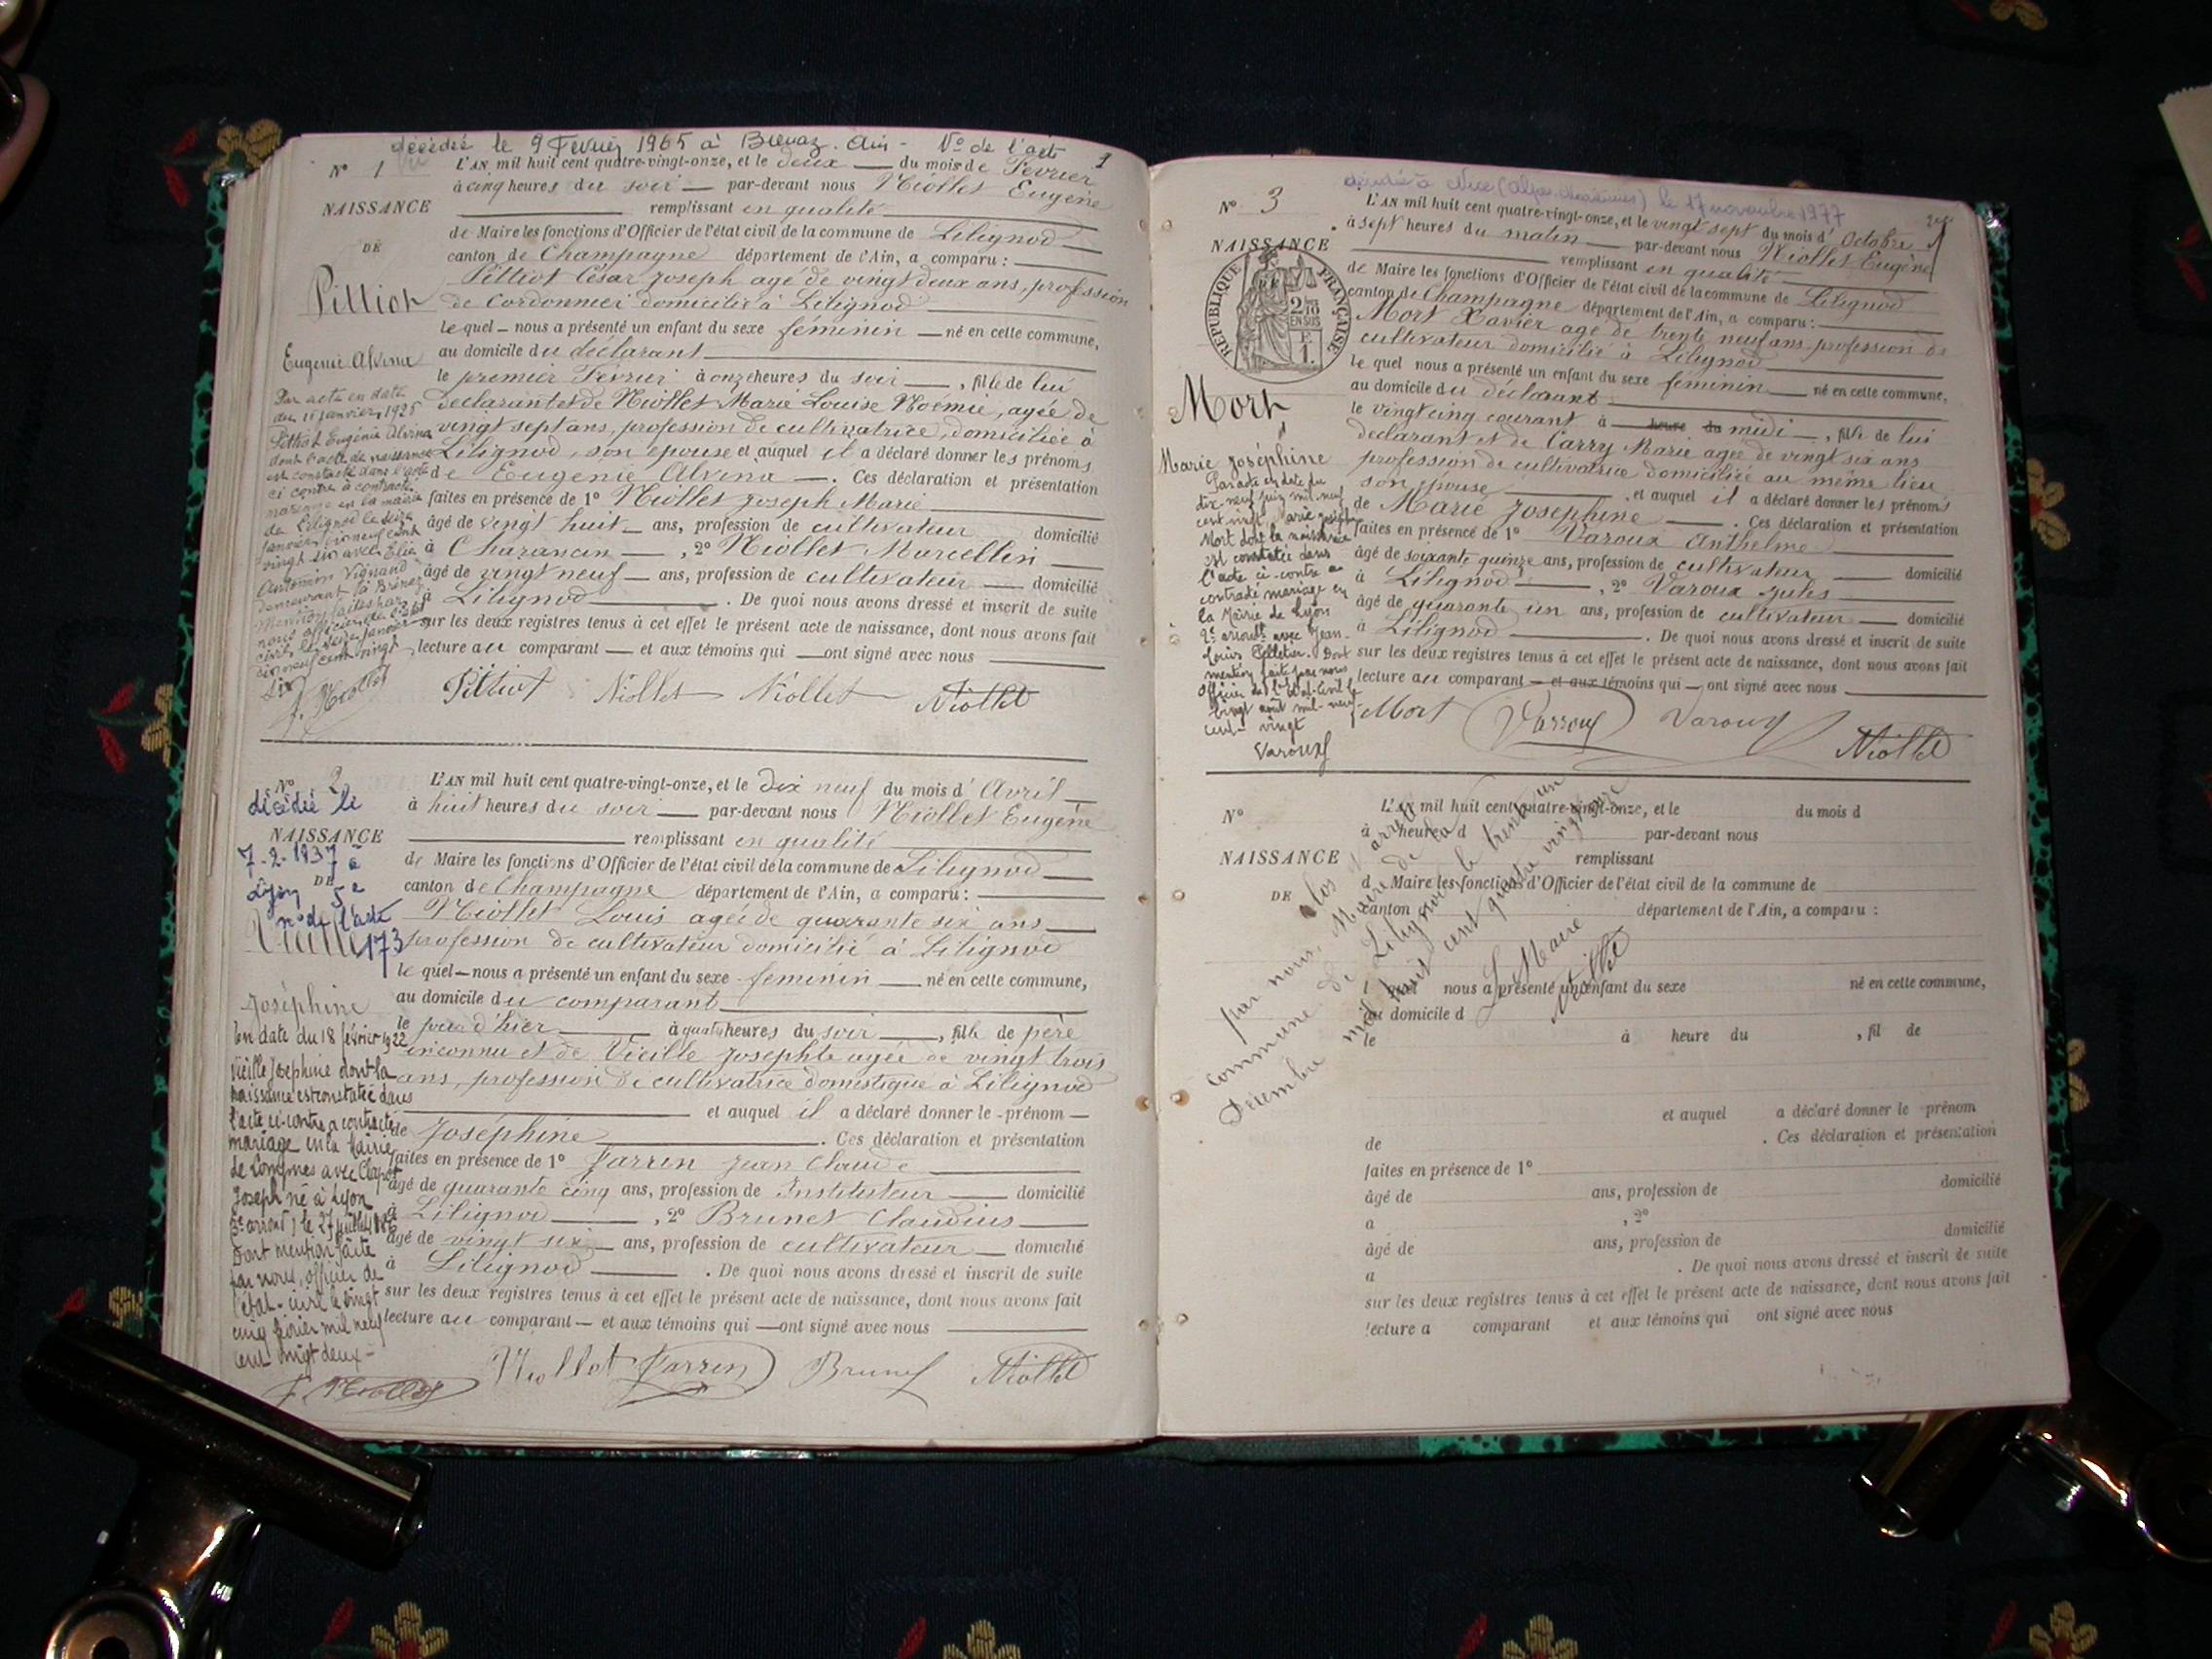 décédée le 9 Février 1965 à Brenaz. Ain - N° de l'acte 1
N° 1
L'AN mil huit cent quatre-vingt-onze, et le deux du mois de Fevrier
à cinq heures du soir par-devant nous Niollet Eugène
NAISSANCE
remplissant en qualité
DE
de Maire les fonctions d'Officier de l'état civil de la commune de Lilignod
canton de Champagne département de l'Ain, a comparu :
Pilliot César Joseph agé de vingt deux ans, profession
Pilliot
de Cordonnier domicilié à Lilignod
le quel nous a présenté un enfant du sexe féminin né en cette commune,
Eugenie Alvina
au domicile du déclarant
le premier Février à onze heures du soir , fille de lui
declarant et de Niollet Marie Louise Noémie, agée de
vingt sept ans, profession de cultivatrice, domiciliée à
Lilignod, son epouse et auquel il a déclaré donner les prénoms
de Eugenie Alvina . Ces déclaration et présentation
faites en présence de 1° Niollet Joseph Marie
âgé de vingt huit ans, profession de cultivateur domicilié
à Charancin , 2° Niollet Marcellin
âgé de vingt neuf ans, profession de cultivateur domicilié
à Lilignod . De quoi nous avons dressé et inscrit de suite
sur les deux registres tenus à cet effet le présent acte de naissance, dont nous avons fait
lecture au comparant et aux témoins qui ont signé avec nous
Par acte en date
du 16 janvier 1926
Pilliot Eugénie Alvina
dont l'acte de naissance
est constaté dans l'acte
ci contre à contracté
mariage en la mairie
de Lilignod le seize
janvier dix neuf cent
vingt six avec Elie
Antonin Vignand
demeurant à Brénaz
Mention faite par
nous officier de l'état
civil, le seize janvier
dix neuf cent vingt
six
J. Niollet
Pilliot Niollet Niollet Niollet
N° 2
décédée le
NAISSANCE
7-2-1937 à
DE
Lyon 5e
n° de l'acte
173
L'AN mil huit cent quatre-vingt-onze, et le Dix neuf du mois d'Avril
à huit heures du soir par-devant nous Niollet Eugène
remplissant en qualité
de Maire les fonctions d'Officier de l'état civil de la commune de Lilignod
canton de Champagne département de l'Ain, a comparu :
Niollet Louis agée de quarante six ans
profession de cultivateur domicilié à Lilignod
le quel nous a présenté un enfant du sexe feminin né en cette commune,
Joséphine
au domicile du comparant
le jour d'hier à quatre heures du soir , fille de père
inconnu et de Vieille Josephte agée de vingt trois
ans, profession de cultivatrice domestique à Lilignod
et auquel il a déclaré donner le prénom
de Joséphine . Ces déclaration et présentation
faites en présence de 1° Farrin Jean Claude
âgé de quarante cinq ans, profession de Instituteur domicilié
à Lilignod , 2° Brunet Claudius
âgé de vingt six ans, profession de cultivateur domicilié
à Lilignod . De quoi nous avons dressé et inscrit de suite
sur les deux registres tenus à cet effet le présent acte de naissance, dont nous avons fait
lecture au comparant et aux témoins qui ont signé avec nous
en date du 18 février 1922
Vieille Josephine dont la
naissance est constatée dans
l'acte ci-contre a contracté
mariage en la Mairie
de Lompnes avec
Joseph né à Lyon
3e arrondt le 27 juillet
Dont mention faite
par nous, officier de
l'état-civil le vingt
cinq février mil neuf
cent vingt deux
J. Niollet
Niollet Farrin Brunet Niollet
décédée à Nice (Alpes-Maritimes) le 17 novembre 1977
N° 3
L'AN mil huit cent quatre-vingt-onze, et le vingt sept du mois d'Octobre
à sept heures du matin par-devant nous Niollet Eugène
NAISSANCE
remplissant en qualité
REPUBLIQUE FRANÇAISE
2/10
EN SUS
F.
1.
de Maire les fonctions d'Officier de l'état civil de la commune de Lilignod
canton de Champagne département de l'Ain, a comparu :
Mort Xavier agé de trente neuf ans, profession de
cultivateur domicilié à Lilignod
le quel nous a présenté un enfant du sexe féminin né en cette commune,
Mort
au domicile du déclarant
le vingt cinq courant à heure du midi , fille de lui
declarant et de Carry Marie agée de vingt six ans
Marie Joséphine
profession de cultivatrice domiciliée au même lieu
son épouse , et auquel il a déclaré donner les prénoms
de Marie Josephine . Ces déclaration et présentation
faites en présence de 1° Varoux Anthelme
âgé de soixante quinze ans, profession de cultivateur domicilié
à Lilignod , 2° Varoux Jules
âgé de quarante un ans, profession de cultivateur domicilié
à Lilignod . De quoi nous avons dressé et inscrit de suite
sur les deux registres tenus à cet effet le présent acte de naissance, dont nous avons fait
lecture au comparant et aux témoins qui ont signé avec nous
Par acte en date du
dix-neuf juin mil-neuf
cent vingt Marie Joséphine
Mort dont la naissance
est constatée dans
l'acte ci-contre a
contracté mariage en
la Mairie de Lyon
2e arrondt avec Jean-
Louis Pelletier. Dont
mention faite par nous
Officier de l'Etat-Civil le
vingt août mil-neuf
cent-vingt
Varoux
Mort Varroux Varoux Niollet
N°
L'AN mil huit cent quatre-vingt-onze, et le du mois d
à heure d par-devant nous
NAISSANCE
remplissant
DE
d Maire les fonctions d'Officier de l'état civil de la commune de
canton département de l'Ain, a comparu :
l quel nous a présenté un enfant du sexe né en cette commune,
au domicile d
le à heure du , fil de
et auquel a déclaré donner le prénom
de . Ces déclaration et présentation
faites en présence de 1°
âgé de ans, profession de domicilié
à , 2°
âgé de ans, profession de domicilié
à . De quoi nous avons dressé et inscrit de suite
sur les deux registres tenus à cet effet le présent acte de naissance, dont nous avons fait
lecture a comparant et aux témoins qui ont signé avec nous
Clos et arrêté
par nous, Maire de la
commune de Lilignod le trente un
Décembre mil huit cent quatre vingt onze
Le Maire
Niollet